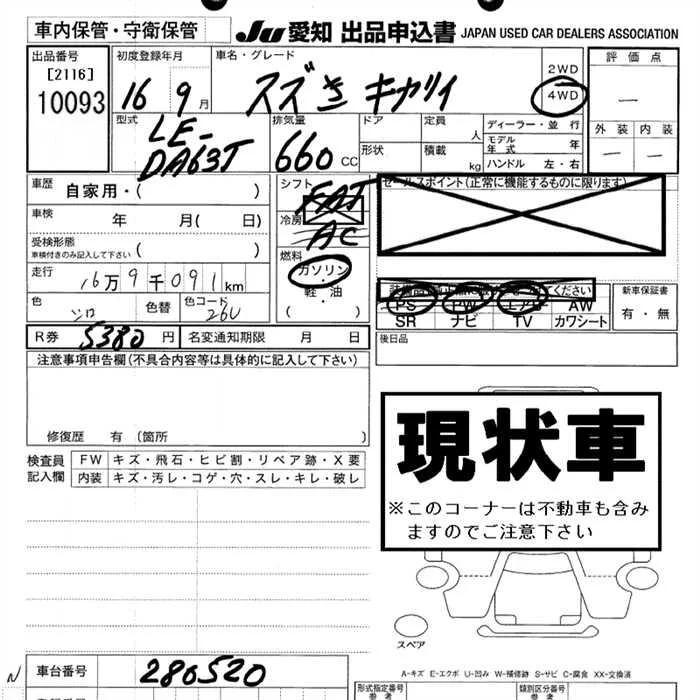 車内保管・守衛保管
JU 愛知 出品申込書 JAPAN USED CAR DEALERS ASSOCIATION
出品番号
[2116]
10093
初度登録年月
16 9 月
車名・グレード
スズキ キャリイ
2WD
4WD
評価点
—
外装 内装
— —
型式
LE-
DA63T
排気量
660 cc
ドア
定員
人
形状
積載
kg
ディーラー・並行
モデル年式 年
ハンドル 左・右
車歴
自家用・( )
車検
年 月( 日)
受検形態
車検付きのみ記入して下さい ( )
走行
16万9千091km
色
シロ
色替
色コード
26U
シフト
FAT
冷房
AC
燃料
ガソリン
・
軽・油
( )
セールスポイント(正常に機能するものに限ります)
ください
PS PW エアB AW
SR ナビ TV カワシート
新車保証書
有・無
後日品
R券 5380 円
名変通知期限 月 日
注意事項申告欄(不具合内容等は具体的に記入して下さい)
修復歴 有 〔箇所 〕
現状車
※このコーナーは不動車も含みますのでご注意下さい
検査員記入欄
FW キズ・飛石・ヒビ割・リペア跡・X要
内装 キズ・汚レ・コゲ・穴・スレ・キレ・破レ
スペア
A-キズ E-エクボ U-凹み W-補修跡 S-サビ C-腐食 XX-交換済
N
車台番号
280520
形式指定番号
参考
類別区分番号
参考